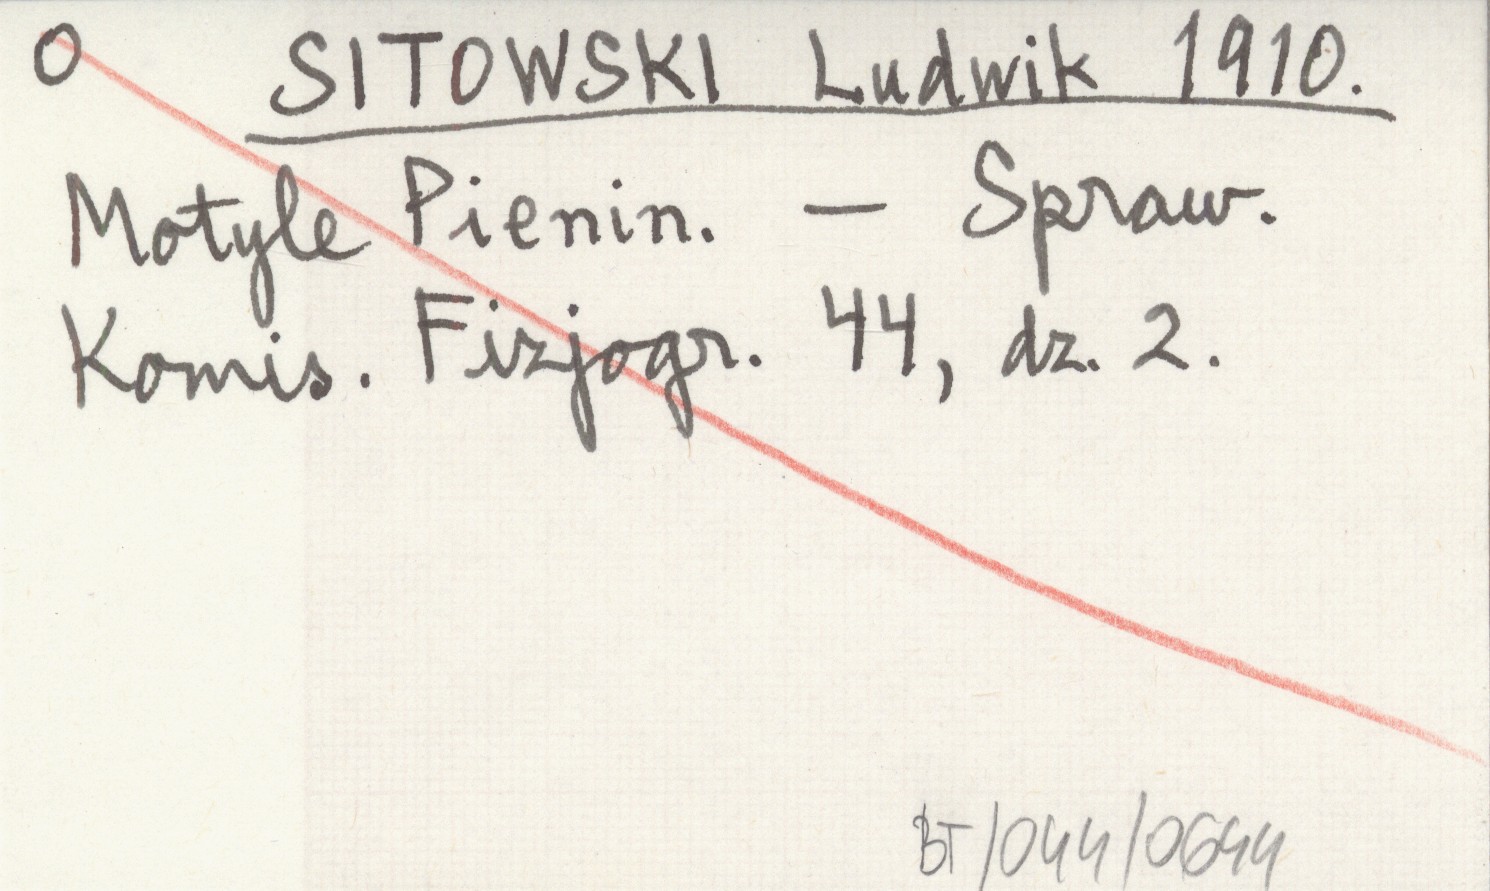 O SITOWSKI Ludwik 1910.
Motyle Pienin. — Spraw.
Komis. Fizjogr. 44, dz. 2.
BT/044/0644